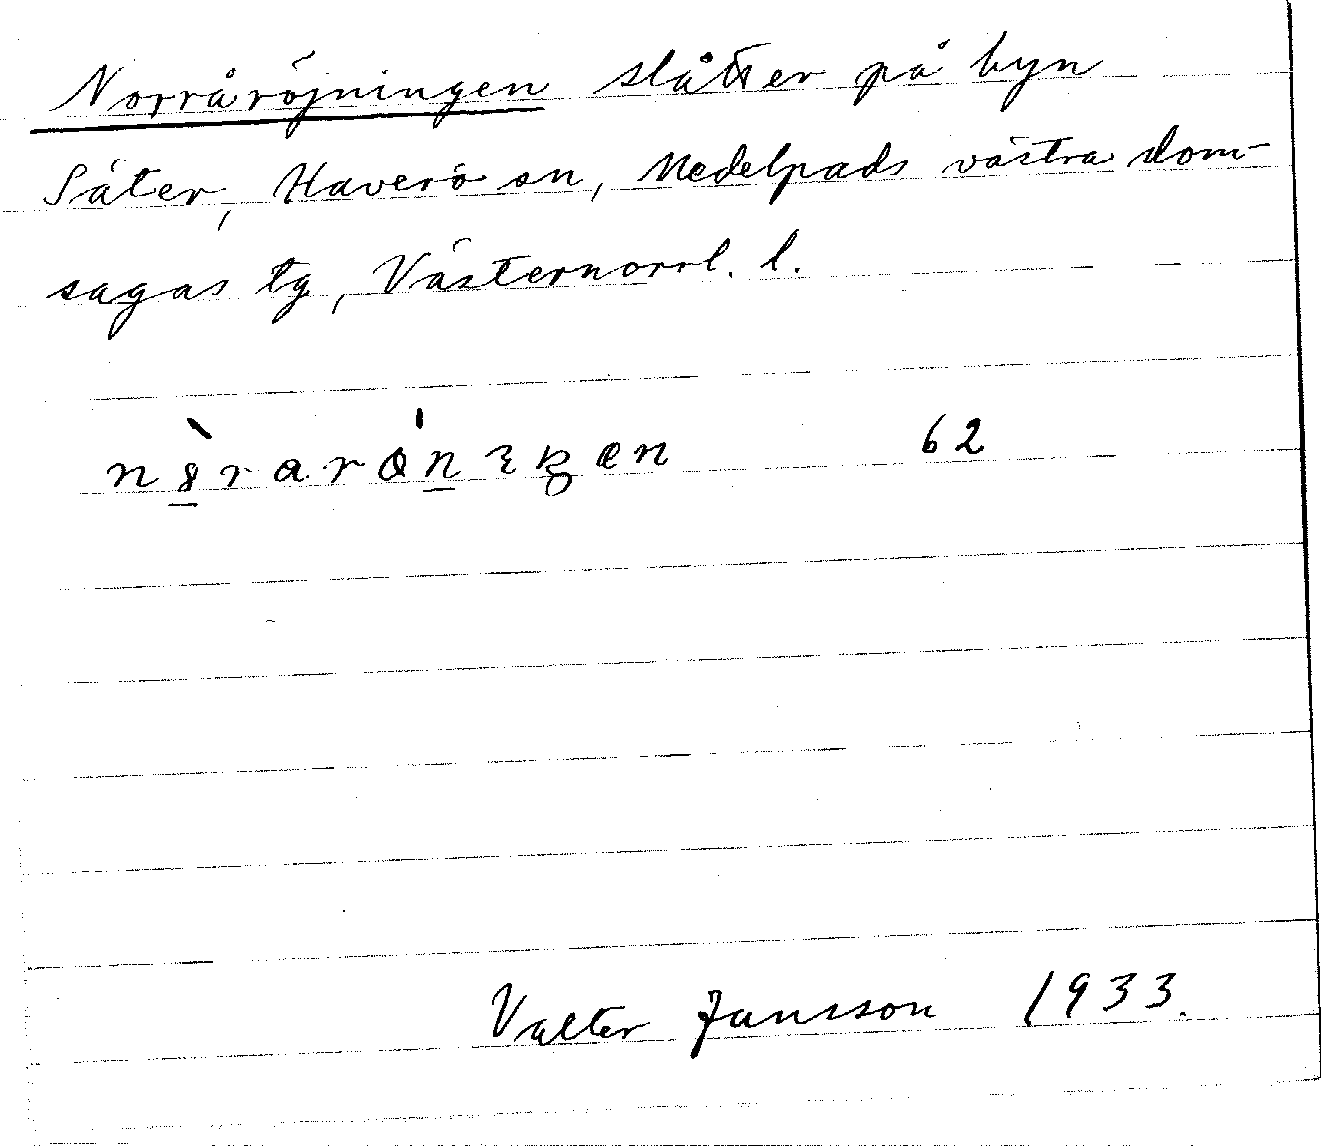 Norråröjningen slåtter på byn
Säter, Haverö sn, Medelpads västra dom-
sagas tg, Västernorrl. l.
62
Valter Jansson 1933.